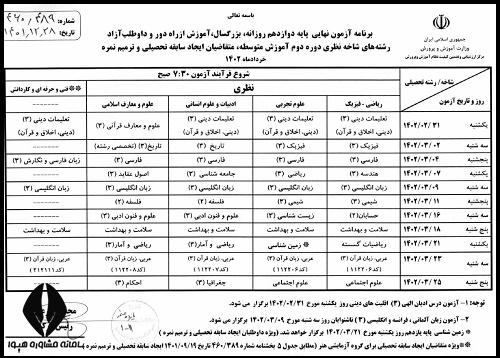 باسمه تعالی
۴۶۰/۴۸۹
شماره:
۱۴۰۱,۱۲,۲۸
تاریخ:
جمهوری اسلامی ایران
وزارت آموزش و پرورش
مرکز ارزشیابی و تضمین کیفیت نظام آموزش و پرورش
برنامه آزمون نهایی پایه دوازدهم روزانه، بزرگسال، آموزش از راه دور و داوطلب آزاد
رشته‌های شاخه نظری دوره دوم آموزش متوسطه، متقاضیان ایجاد سابقه تحصیلی و ترمیم نمره
خردادماه ۱۴۰۲
شاخه/ رشته تحصیلی
روز و تاریخ آزمون
شروع فرآیند آزمون ۷:۳۰ صبح
نظری
**فنی و حرفه ای و کاردانش
ریاضی - فیزیک
علوم تجربی
ادبیات و علوم انسانی
علوم و معارف اسلامی
--------
یکشنبه ۱۴۰۲/۰۲/۳۱
تعلیمات دینی (۳) (دینی، اخلاق و قرآن)
تعلیمات دینی (۳) (دینی، اخلاق و قرآن)
تعلیمات دینی (۳) (دینی، اخلاق و قرآن)
علوم و معارف قرآنی (۳)
تعلیمات دینی (۳) (دینی، اخلاق و قرآن)
سه شنبه ۱۴۰۲/۰۳/۰۲
فیزیک (۳)
فیزیک (۳)
تاریخ (۳)
تاریخ (۳) (تخصصی رشته)
--------
پنجشنبه ۱۴۰۲/۰۳/۰۴
فارسی (۳)
فارسی (۳)
فارسی (۳)
فارسی (۳)
زبان فارسی و نگارش (۳)
یکشنبه ۱۴۰۲/۰۳/۰۷
هندسه (۳)
ریاضی (۳)
جامعه شناسی (۳)
اصول عقاید (۳)
--------
سه شنبه ۱۴۰۲/۰۳/۰۹
زبان انگلیسی (۳)
زبان انگلیسی (۳)
زبان انگلیسی (۳)
زبان انگلیسی (۳)
زبان انگلیسی (۳)
پنجشنبه ۱۴۰۲/۰۳/۱۱
شیمی (۳)
شیمی (۳)
فلسفه (۲)
فلسفه (۲)
--------
سه شنبه ۱۴۰۲/۰۳/۱۶
حسابان (۲)
زیست شناسی (۳)
علوم و فنون ادبی (۳)
علوم و فنون ادبی (۳)
--------
پنج شنبه ۱۴۰۲/۰۳/۱۸
سلامت و بهداشت
سلامت و بهداشت
سلامت و بهداشت
سلامت و بهداشت
سلامت و بهداشت
یکشنبه ۱۴۰۲/۰۳/۲۱
ریاضیات گسسته
* زمین شناسی
ریاضی و آمار(۳)
ریاضی و آمار(۳)
--------
سه شنبه ۱۴۰۲/۰۳/۲۳
عربی، زبان قرآن (۳) (کد ۱۱۲۲۰۶)
عربی، زبان قرآن (۳) (کد ۱۱۲۲۰۶)
عربی، زبان قرآن (۳) (کد ۱۱۲۲۰۷)
عربی، زبان قرآن (۳) (کد ۱۱۲۲۰۸)
عربی، زبان قرآن (۳) (کد ۲۱۲۱۱۱)
پنج شنبه ۱۴۰۲/۰۳/۲۵
علوم اجتماعی
علوم اجتماعی
جغرافیا (۳)
احکام (۳)
--------
توجه: ۱ – آزمون درس ادیان الهی (۳) اقلیت های دینی روز یکشنبه مورخ ۱۴۰۲/۰۲/۳۱ برگزار می شود.
۲ – آزمون زبان آلمانی، فرانسه و انگلیسی (۳) ناشنوایان روز سه شنبه مورخ ۱۴۰۲/۰۳/۰۹ برگزار می شود.
* زمین شناسی پایه یازدهم روز یکشنبه مورخ ۱۴۰۲/۰۳/۲۱ برگزار خواهد شد. (ویژه داوطلبان ایجاد سابقه تحصیلی و ترمیم نمره)
**ویژه متقاضیان ایجاد سابقه تحصیلی و ترمیم نمره برای گروه آزمایشی هنر (مطابق جدول ۵ بخشنامه شماره ۴۶۰/۳۸۹ مورخ ۱۴۰۱/۰۹/۱۹ ایجاد سابقه تحصیلی و ترمیم نمره)
سامانه مشاوره هیوا